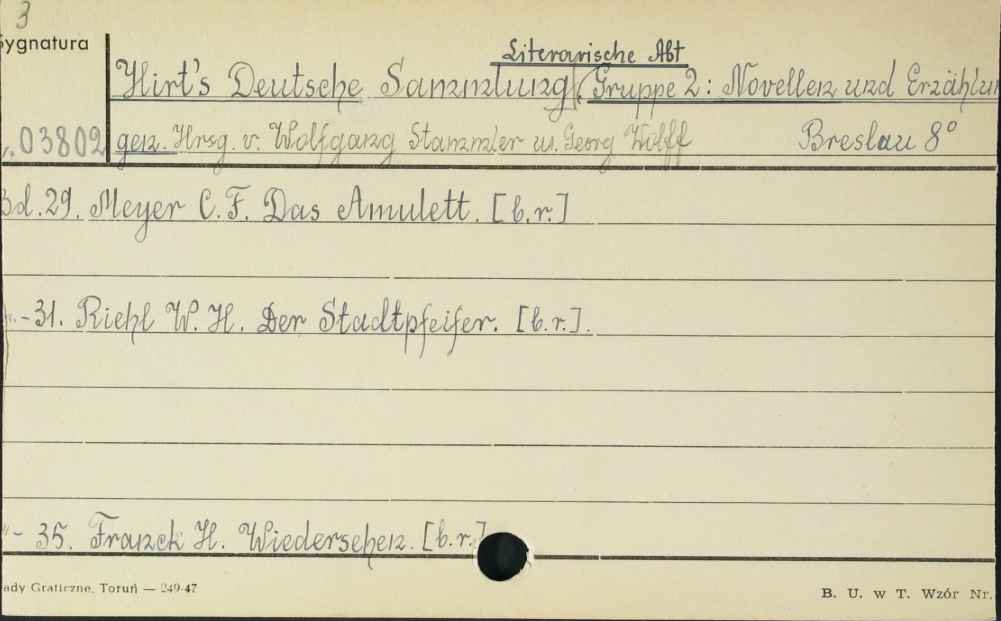 3
Sygnatura
Literarische Abt
Hirt's Deutsche Sammlung (Gruppe 2: Novellen und Erzählun
03802 gen. Hrsg. v. Wolfgang Stammler u. Georg Wolff Breslau 8°
Bd. 29. Meyer C. F. Das Amulett. [b.r.]
-31. Riehl W. H. Der Stadtpfeifer. [b.r.].
"- 35. Franck H. Wiedersehen. [b.r.]
ady Graficzne, Toruń — 249-47
B. U. w T. Wzór Nr.